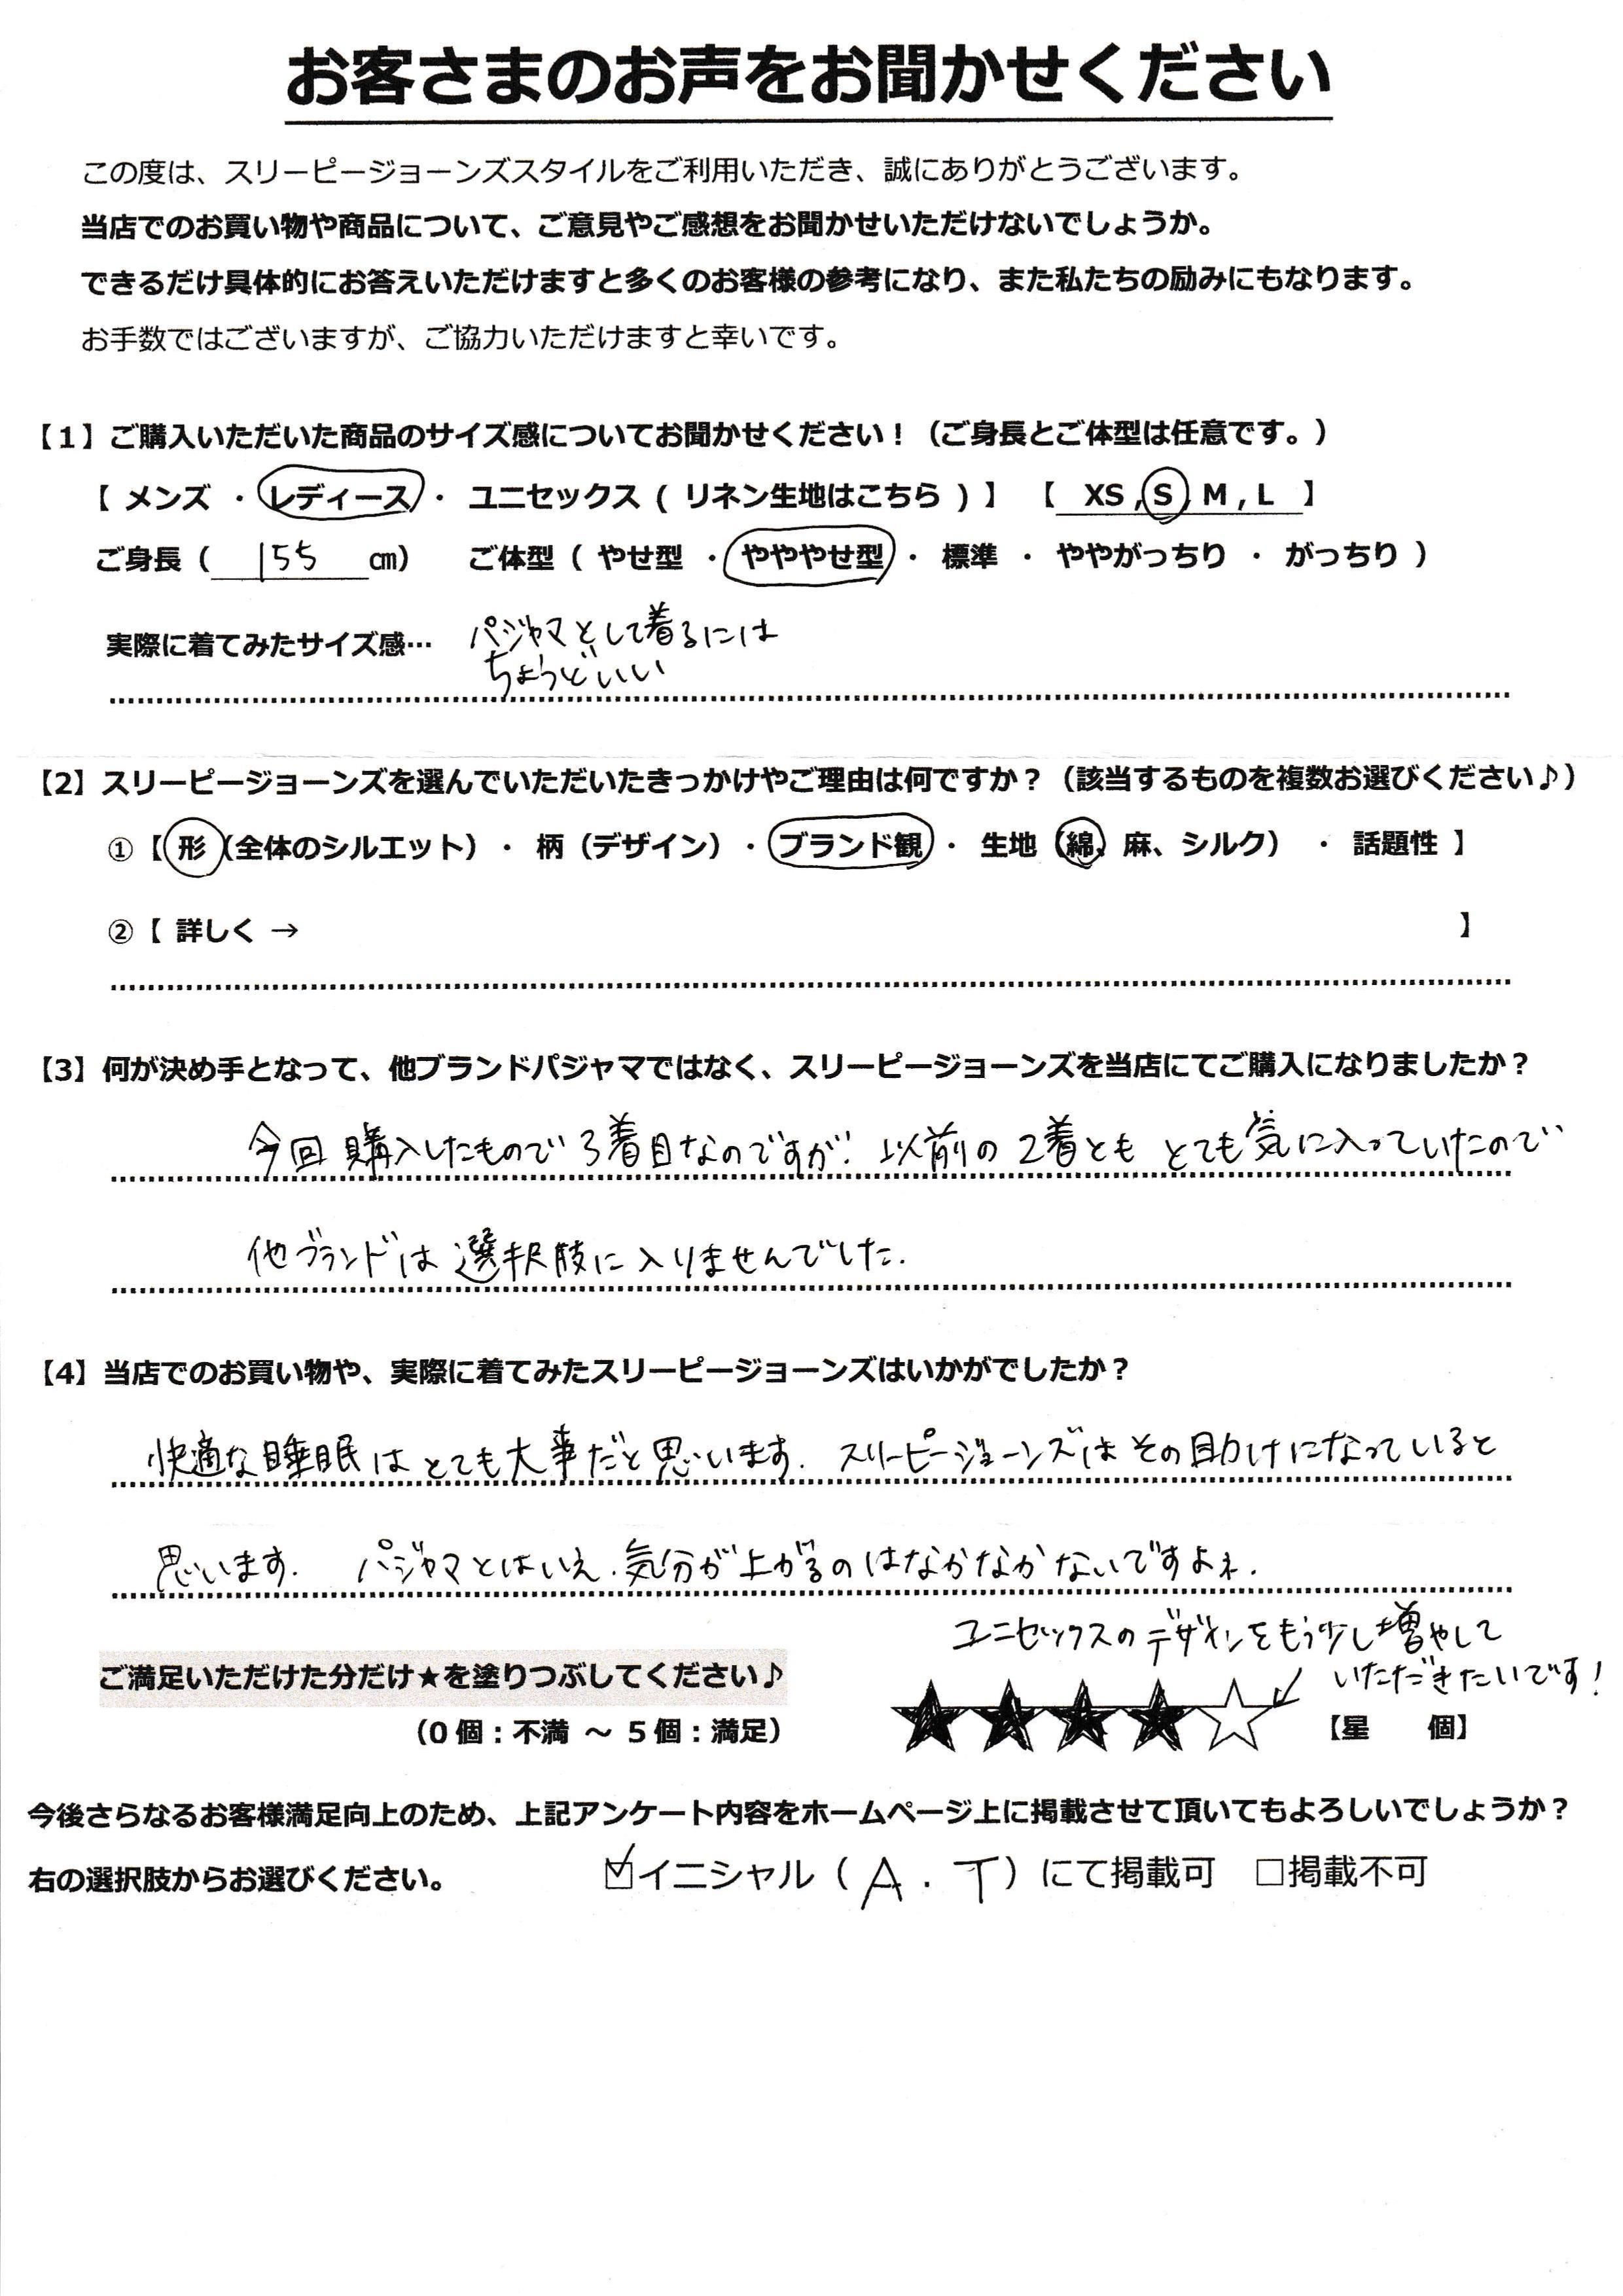 お客さまのお声をお聞かせください
この度は、スリーピージョーンズスタイルをご利用いただき、誠にありがとうございます。
当店でのお買い物や商品について、ご意見やご感想をお聞かせいただけないでしょうか。
できるだけ具体的にお答えいただけますと多くのお客様の参考になり、また私たちの励みにもなります。
お手数ではございますが、ご協力いただけますと幸いです。
【1】ご購入いただいた商品のサイズ感についてお聞かせください！（ご身長とご体型は任意です。）
【 メンズ ・ レディース ・ ユニセックス ( リネン生地はこちら ) 】 【 XS , S , M , L 】
ご身長（ 155 ㎝） ご体型（ やせ型 ・ やややせ型 ・ 標準 ・ ややがっちり ・ がっちり ）
実際に着てみたサイズ感… パジャマとして着るには
ちょうどいい
【2】スリーピージョーンズを選んでいただいたきっかけやご理由は何ですか？（該当するものを複数お選びください♪）
①【 形（全体のシルエット）・ 柄（デザイン）・ ブランド観 ・ 生地（綿、麻、シルク） ・ 話題性 】
②【 詳しく → 】
【3】何が決め手となって、他ブランドパジャマではなく、スリーピージョーンズを当店にてご購入になりましたか？
今回購入したもので3着目なのですが、以前の2着とも とても気に入っていたので
他ブランドは選択肢に入りませんでした.
【4】当店でのお買い物や、実際に着てみたスリーピージョーンズはいかがでしたか？
快適な睡眠はとても大事だと思います. スリーピージョーンズはその助けになっていると
思います. パジャマとはいえ.気分が上がるのはなかなかないですよね.
ユニセックスのデザインをもう少し増やして
いただきたいです！
ご満足いただけた分だけ★を塗りつぶしてください♪
★★★★☆ 【星 個】
（0 個：不満 ～ 5 個：満足）
今後さらなるお客様満足向上のため、上記アンケート内容をホームページ上に掲載させて頂いてもよろしいでしょうか？
右の選択肢からお選びください。 ☑イニシャル（ A . T ）にて掲載可 □掲載不可